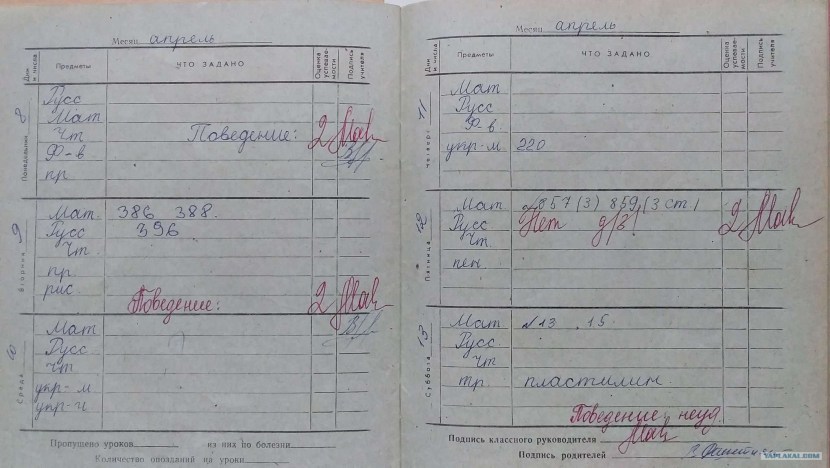 Месяц апрель
Дни и числа Предметы ЧТО ЗАДАНО Оценка успеваемости Подпись учителя
Понедельник 8
Русс
Мат
Чт Поведение: 2
Ф-в
пр
Вторник 9
Мат. 386 388.
Русс 396
Чт
пр
рис.
Поведение: 2
Среда
Мат
Русс
Чт
упр-м
упр-и
Пропущено уроков из них по болезни
Количество опозданий на уроки
Месяц апрель
Дни и числа Предметы ЧТО ЗАДАНО Оценка успеваемости Подпись учителя
Четверг 11
Мат
Русс
Ф-в.
упр-м 220
Пятница 12
Мат 857 (3) 859 (3 ст.)
Русс Нет д/з! 2
Чт
пен.
Суббота 13
Мат №13 15
Русс
Чт
тр пластилин
Поведение неуд.
Подпись классного руководителя
Подпись родителей
YAPLAKAL.COM